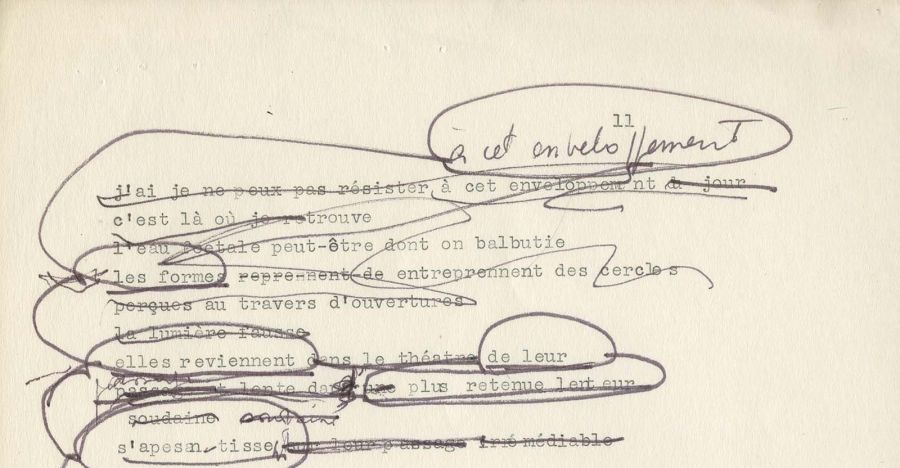 11
à cet enveloppement
j'ai je ne peux pas résister à cet enveloppem nt du jour
c'est là où je retrouve
l'eau foetale peut-être dont on balbutie
les formes reprennent de entreprennent des cercles
perçues au travers d'ouvertures
la lumière fausse
elles reviennent dans le théatre de leur
lente dans une plus retenue lenteur
soudaine soudaine
s'apesn tisse leur passage irrémédiable